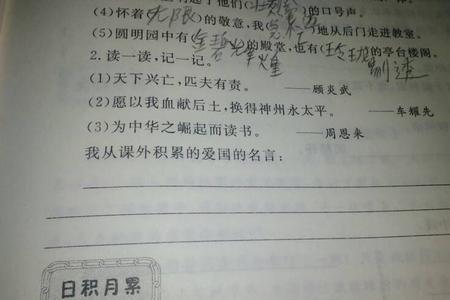 了他们( )的口号声。
(4)怀着(无限)的敬意,我( )地从后门走进教室。
(5)圆明园中有(金碧辉煌)的殿堂,也有(玲珑剔透)的亭台楼阁。
2.读一读,记一记。
(1)天下兴亡,匹夫有责。 ——顾炎武
(2)愿以我血献后土,换得神州永太平。 ——车耀先
(3)为中华之崛起而读书。 ——周恩来
我从课外积累的爱国的名言:
日积月累